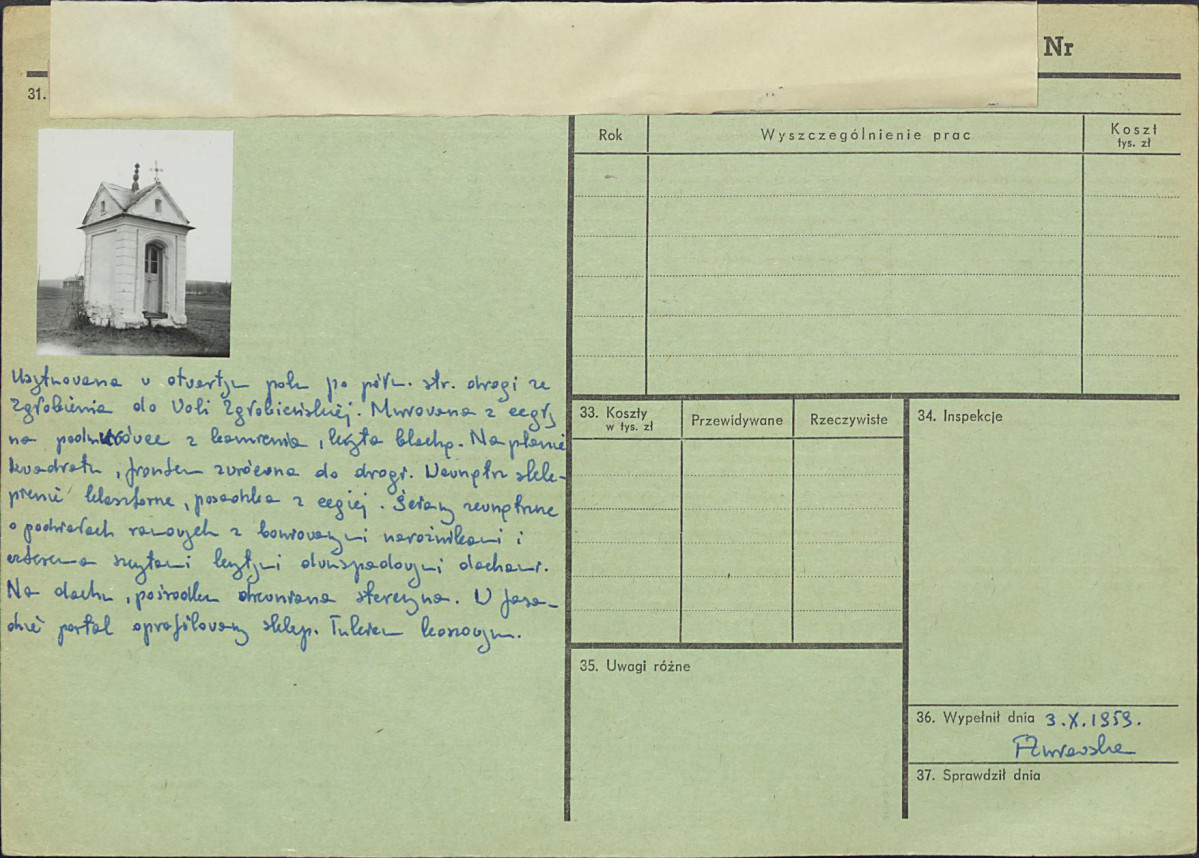 Nr
31.
Usytuowana w otwartym polu po półn. str. drogi ze
Zgłobienia do Woli Zgłobieńskiej. Murowana z cegły
na podmurówce z kamienia, kryta blachą. Na planie
kwadratu, frontem zwrócona do drogi. Wewnątrz skle-
pienie klasztorne, posadzka z cegieł. Ściany zewnętrzne
o podziałach ramowych z boniowanymi narożnikami i
czterema szczytami krytymi dwuspadowymi dachami.
Na dachu, pośrodku drewniana sterczyna. W fasa-
dzie portal oprofilowany sklep. łukiem koszowym.
Rok
Wyszczególnienie prac
Koszt
tys. zł
33. Koszty
w tys. zł
Przewidywane
Rzeczywiste
34. Inspekcje
35. Uwagi różne
36. Wypełnił dnia 3.X.1959.
37. Sprawdził dnia